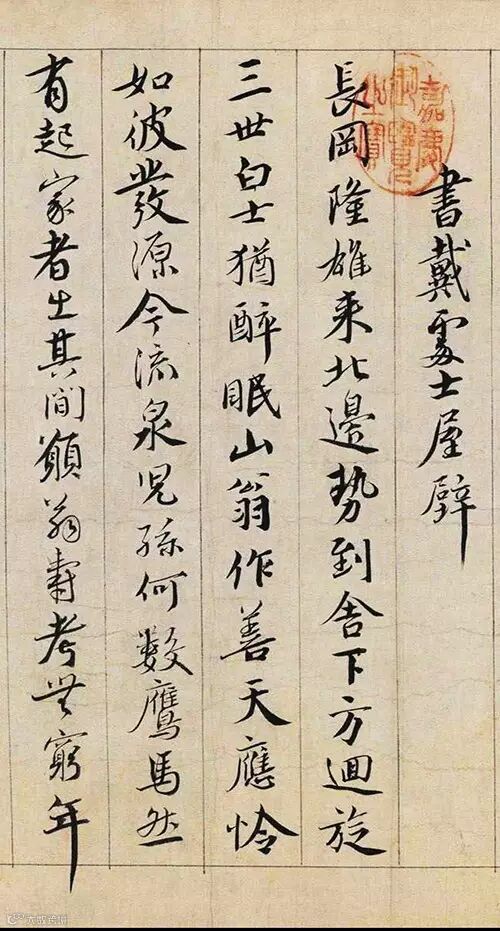 書戴處士屋壁
長岡隆雄来北邊勢到舍下方迴旋
三世白士猶醉眠山翁作善天應憐
如彼發源今流泉兒孫何數鷹馬然
有起家者出其間願翁壽考無窮年
嘉慶御覽之寶